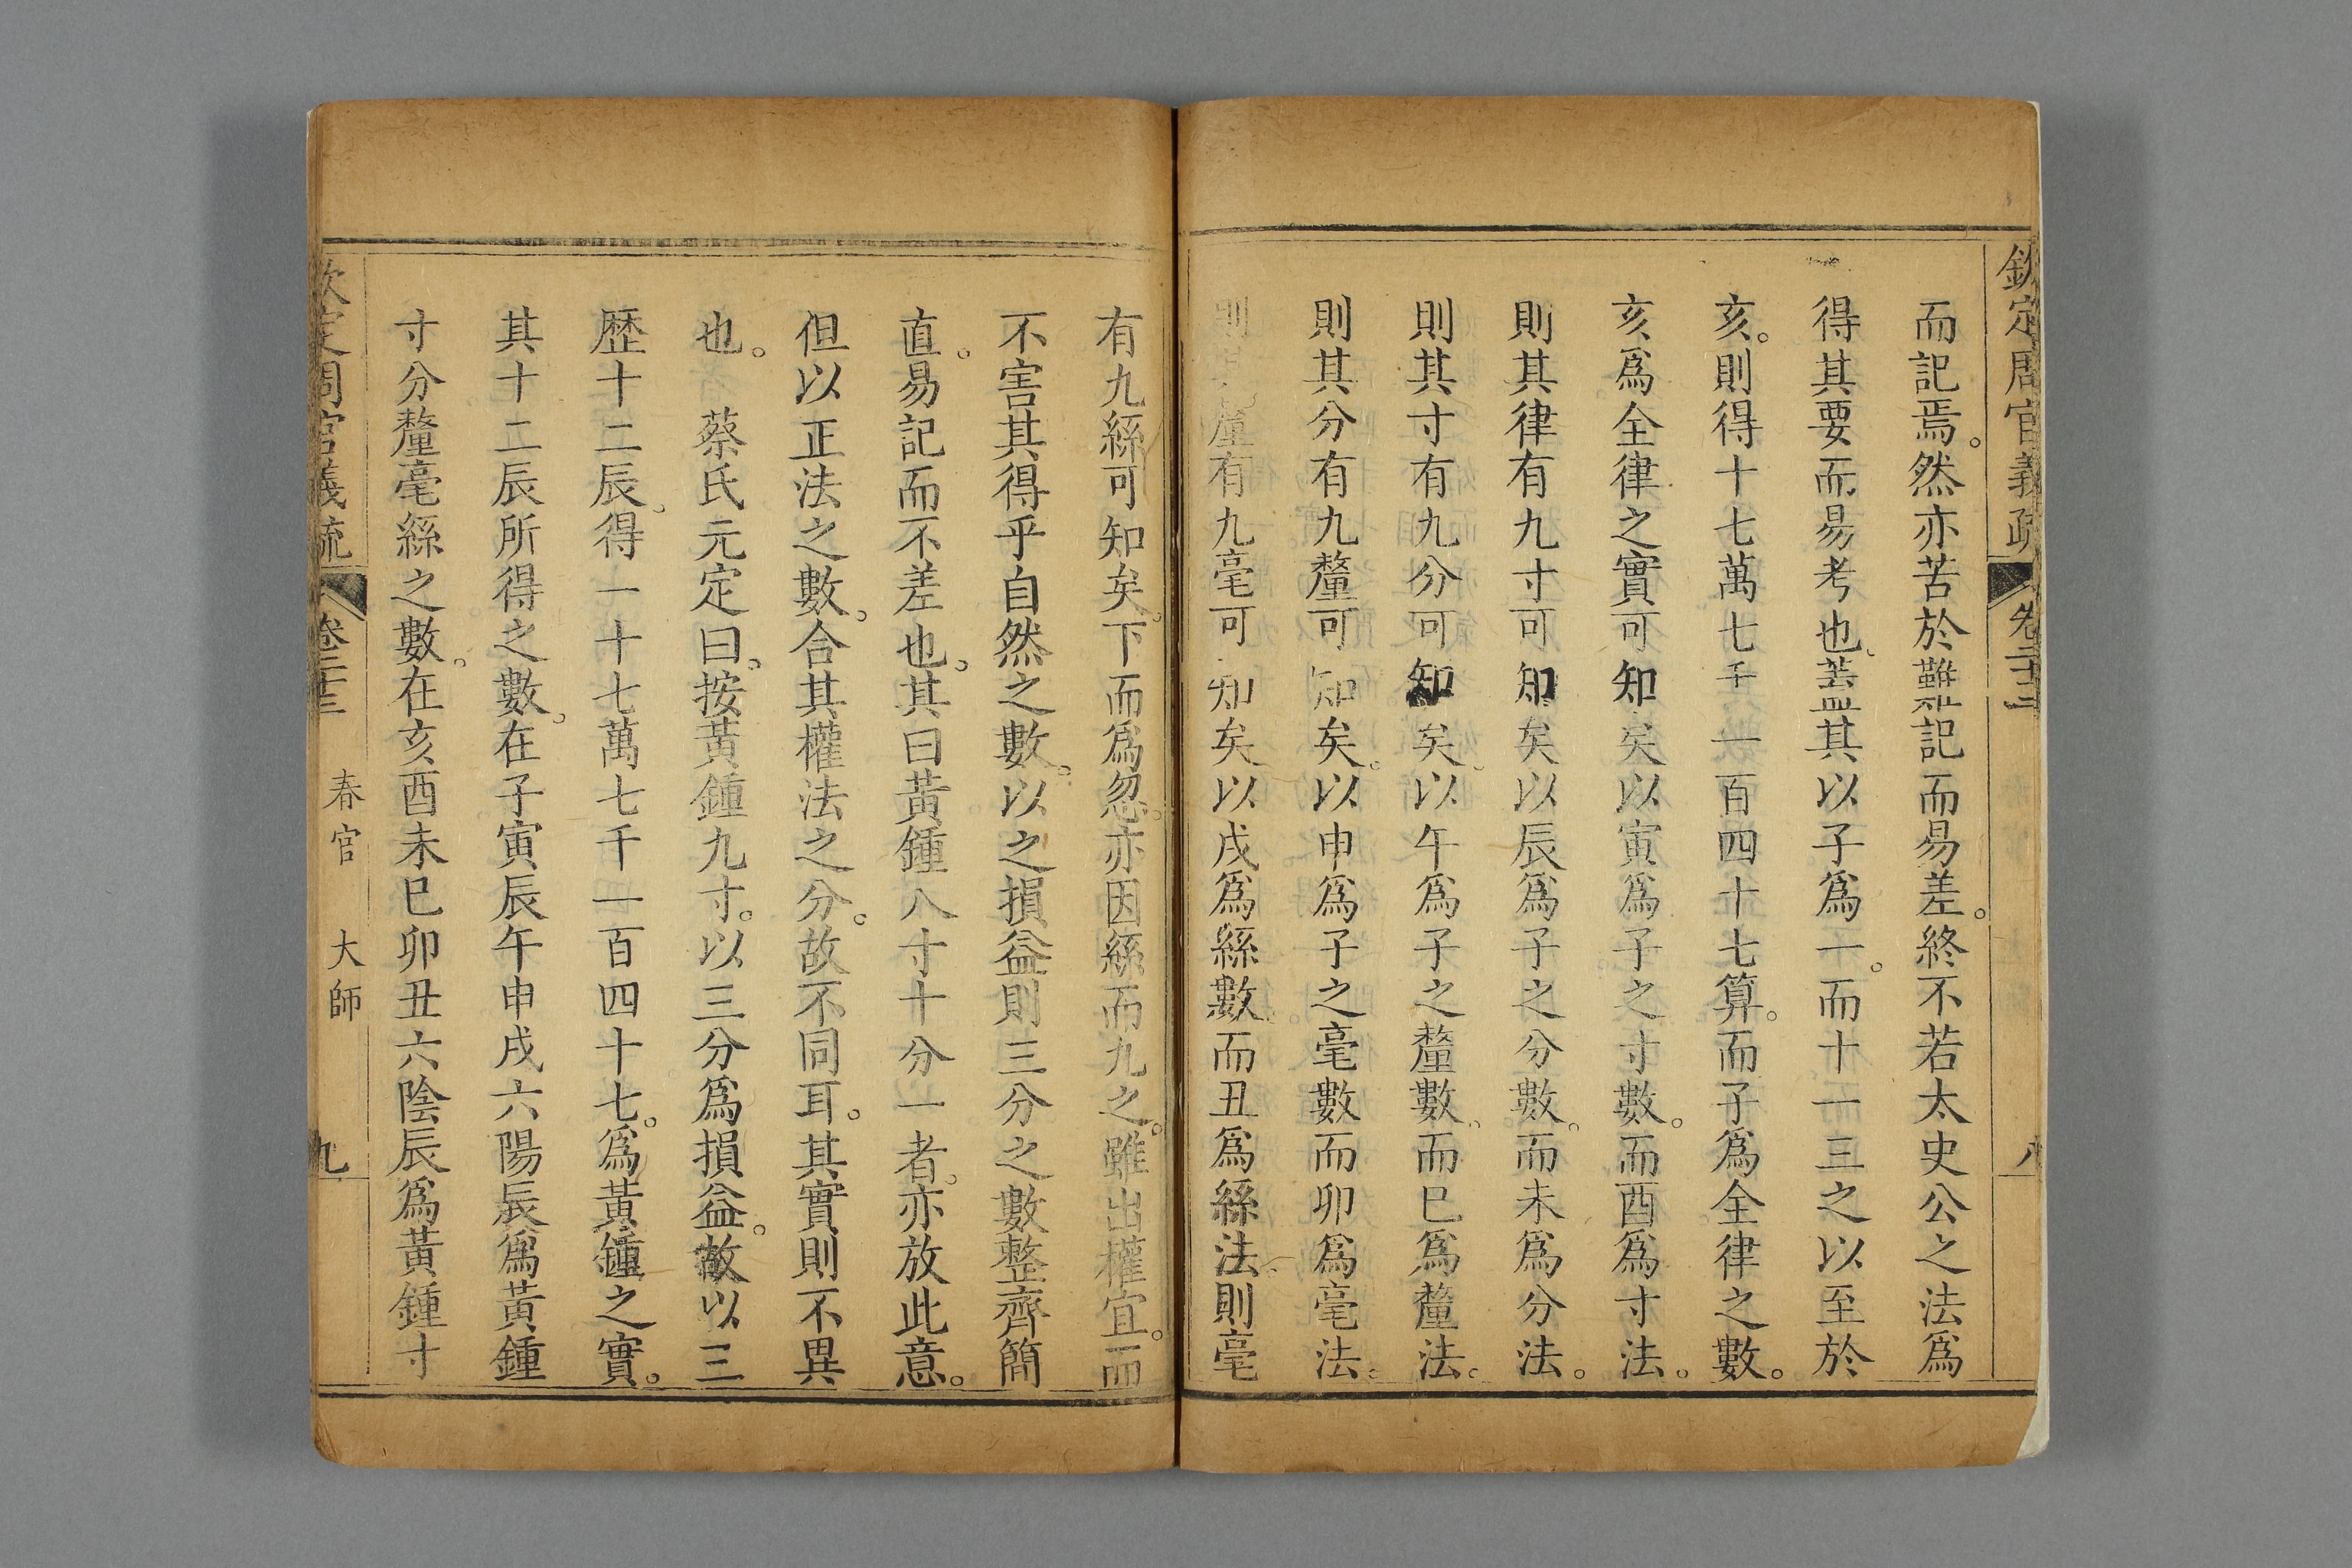 欽定周官義疏 卷二十三 八
而記焉。然亦苦於難記而易差。終不若太史公之法爲
得其要而易考也。蓋其以子爲一。而十一三之以至於
亥。則得十七萬七千一百四十七算。而子爲全律之數。
亥爲全律之實可知矣以寅爲子之寸數。而酉爲寸法。
則其律有九寸可知矣以辰爲子之分數。而未爲分法。
則其寸有九分可知矣。以午爲子之釐數。而巳爲釐法。
則其分有九釐可知矣。以申爲子之毫數而卯爲毫法。
則其釐有九毫可知矣。以戌爲絲數。而丑爲絲法。則毫
有九絲可知矣。下而爲忽。亦因絲而九之。雖出權宜。而
不害其得乎自然之數。以之損益則三分之數整齊簡
直。易記而不差也。其曰黃鍾八寸十分一者。亦放此意。
但以正法之數。合其權法之分。故不同耳。其實則不異
也。 蔡氏元定曰。按黃鍾九寸。以三分爲損益。故以三
歷十二辰。得一十七萬七千一百四十七。爲黃鍾之實。
其十二辰所得之數。在子寅辰午申戌六陽辰爲黃鍾
寸分釐毫絲之數。在亥酉未巳卯丑六陰辰爲黃鍾寸
欽定周官義疏 卷二十三 春官 大師 九